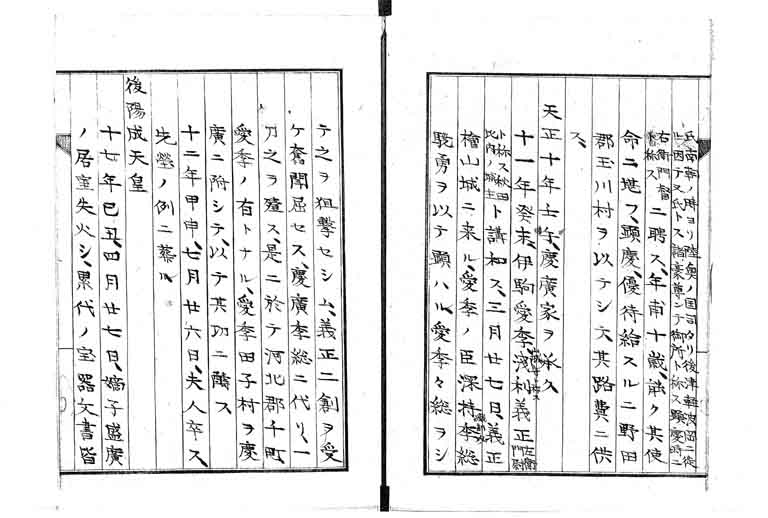 氏南朝ノ時ヨリ陸奥ノ国司タリ後津軽波岡ニ徙
世因テ又氏トス諸豪尊ンテ御所ト称ス顕慶時ニ
右衛門督ト称ス ニ聘ス、年甫十歳、能ク其使
命ニ堪フ、顕慶、優待給スルニ野田
郡玉川村ヲ以テシ、其路費ニ供
ス、
天正十年壬午、慶廣家ヲ承ク
十一年癸未、伊駒愛季、浅利義正 左衛門尉
ト称ス秋田比内ノ城主 ト講和ス、三月廿七日、義正
檜山城ニ来ル、愛季ノ臣深持季総
驍勇ヲ以テ顕ハル、愛季々総ヲシ
テ之ヲ狙撃セシム、義正二創ヲ受
ケ奮闘屈セス、慶廣季総ニ代リ、一
刀之ヲ殪ス、是ニ於テ河北郡千町
愛季ノ有トナル、愛季田子村ヲ慶
廣ニ附シテ、以テ其功ニ酬ス
十二年甲申、七月廿六日、夫人卒ス、
先塋ノ例ニ葬ル、
後陽成天皇
十七年己丑、四月廿七日、嫡子盛廣
ノ居室失火シ、累代ノ宝器文書皆